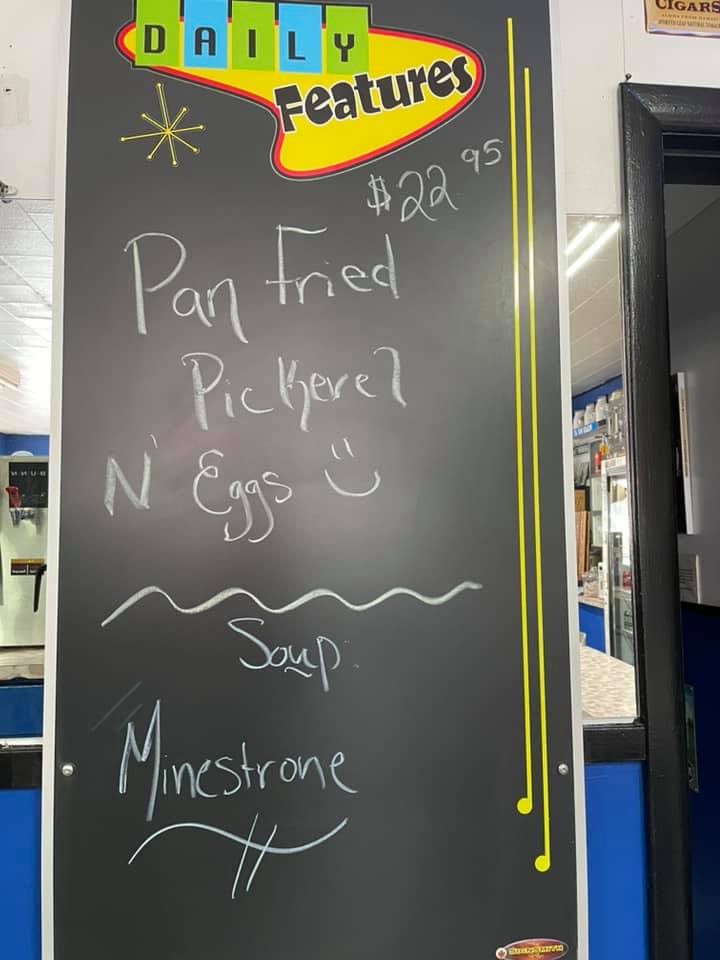 CIGARS
DAILY
Features
$22 95
Pan Fried
Pickerel
N' Eggs
Soup:
Minestrone
SIGNSMITH